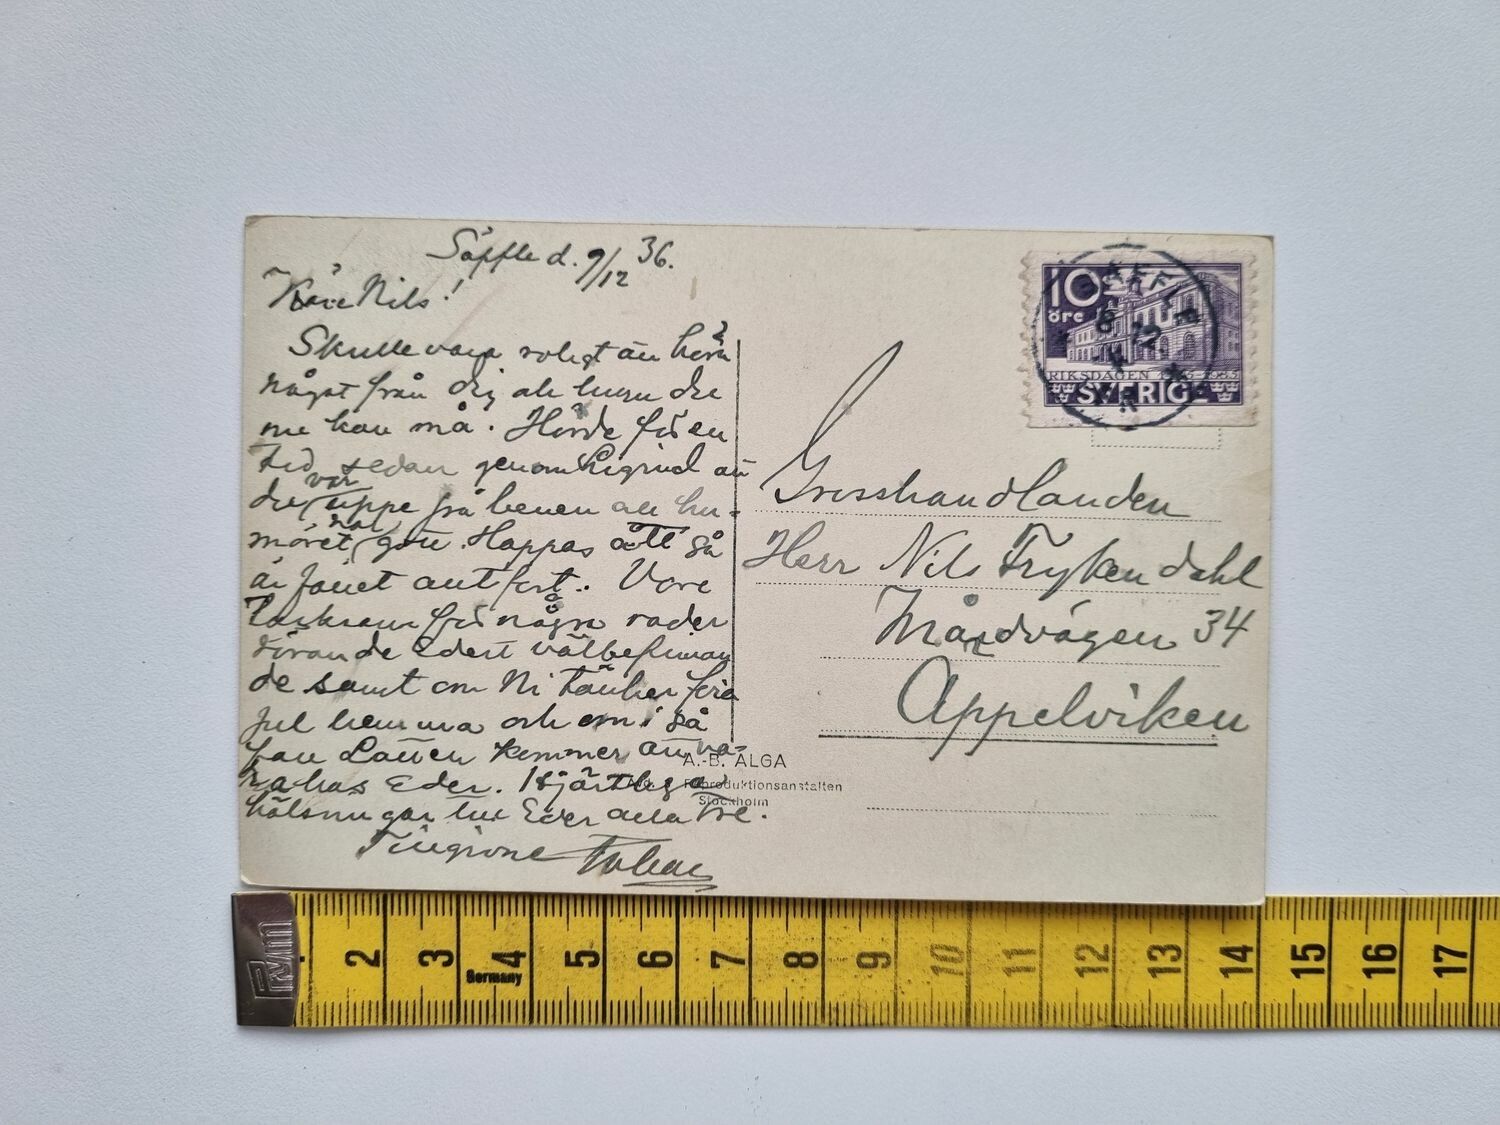 Säffle d. 9/12 36.
Käre Nils!
Skulle vara roligt än höra
något från dig och huru du
nu kan må. Hörde för en
tid sedan genom Sigrid att
du var uppe på benen och hu-
möret var gott. Hoppas att så
är fallet allt fort.. Vore
tacksam för några rader
rörande Edert välbefinnan
de samt om Ni tänker fira
jul hemma och om i så
fall Lotten kommer att va-
ra hos Eder. Hjärtliga
hälsningar till Eder alla tre.
Grosshandlanden
Herr Nils Frykendahl
Mårdvägen 34
Appelviken
10
öre
RIKSDAGEN
SVERIGE
SÄFFLE
A.-B. ALGA
Reproduktionsanstalten
Stockholm
2 3 4 5 6 7 8 9 10 11 12 13 14 15 16 17
Germany